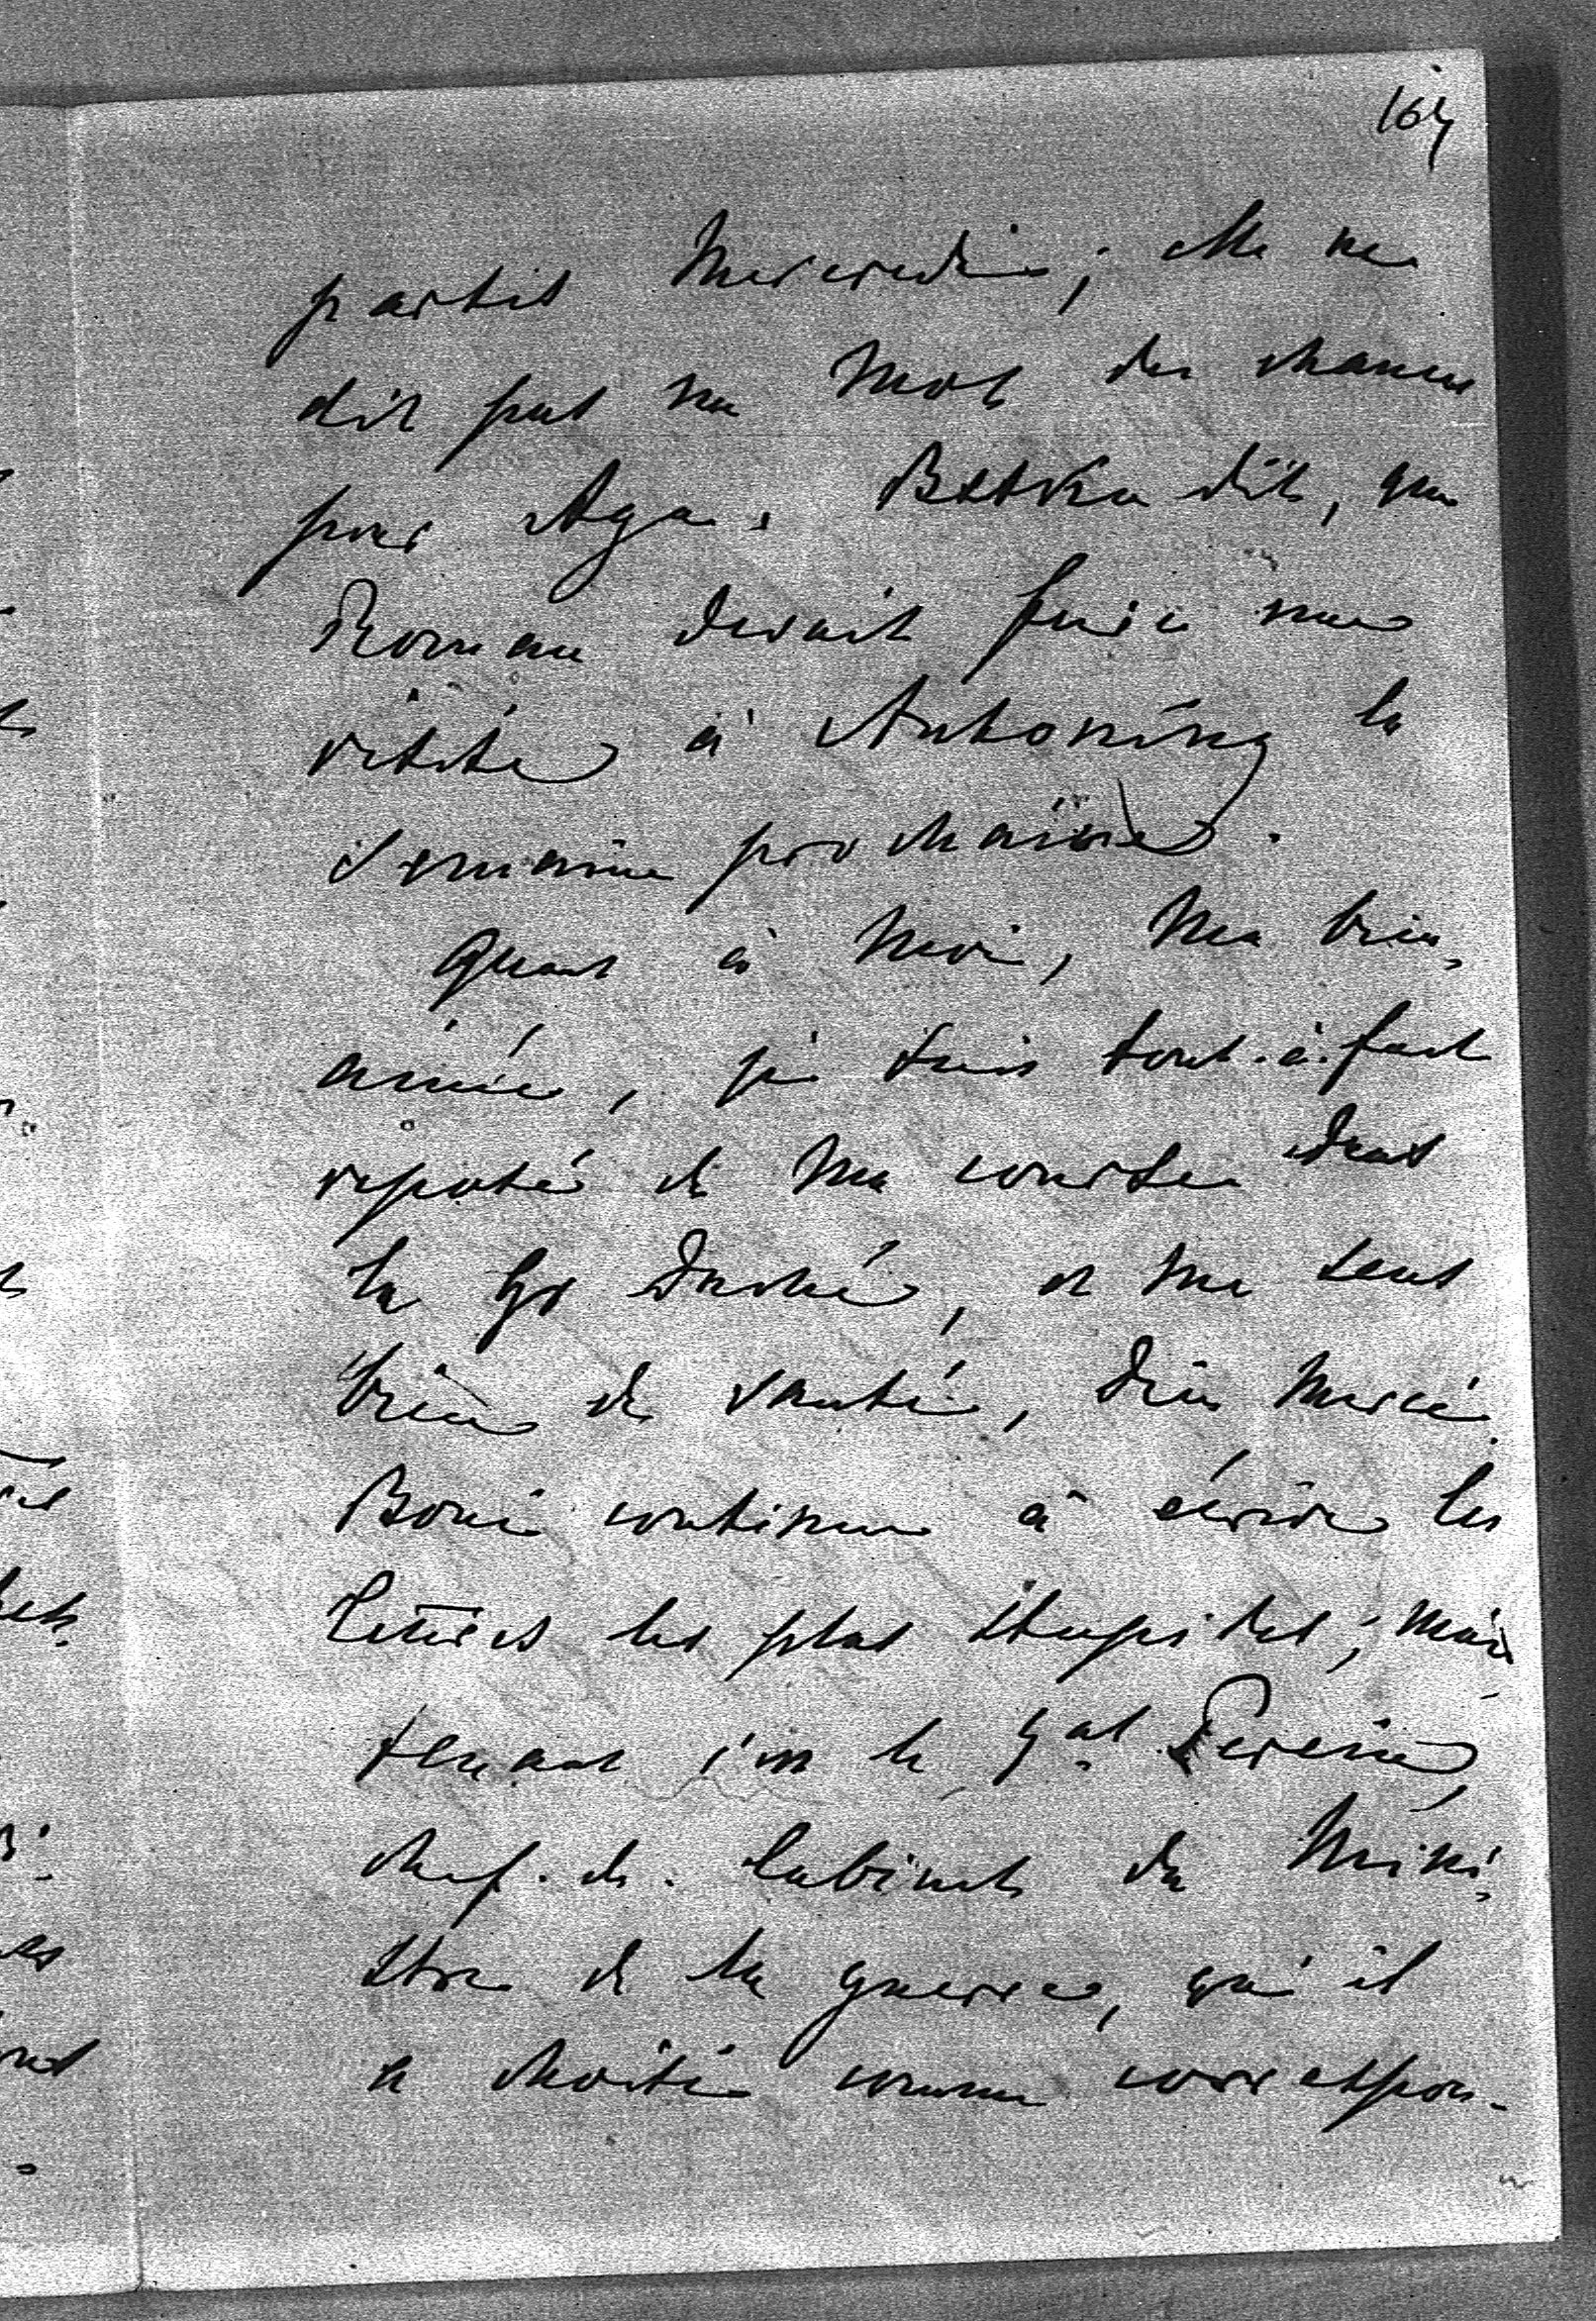 partit Mercredi; elle ne
dit pas un mot des chances
pour Aga. Betka dit, que
Roman devait faire une
visite à Antoniny la
semaine prochaine.
Quant à moi, ma bien,
aimée, je suis tout-à-fait
reposé de ma course dans
le Gd Duché, et me sens
bien de santé, Dieu merci.
Boni continue à écrire les
lettres les plus stupides; main
tenant c'est le gal
chef-de-Cabinet du Mini,
stre de la guerre, qu'il
a choisi comme correspon-